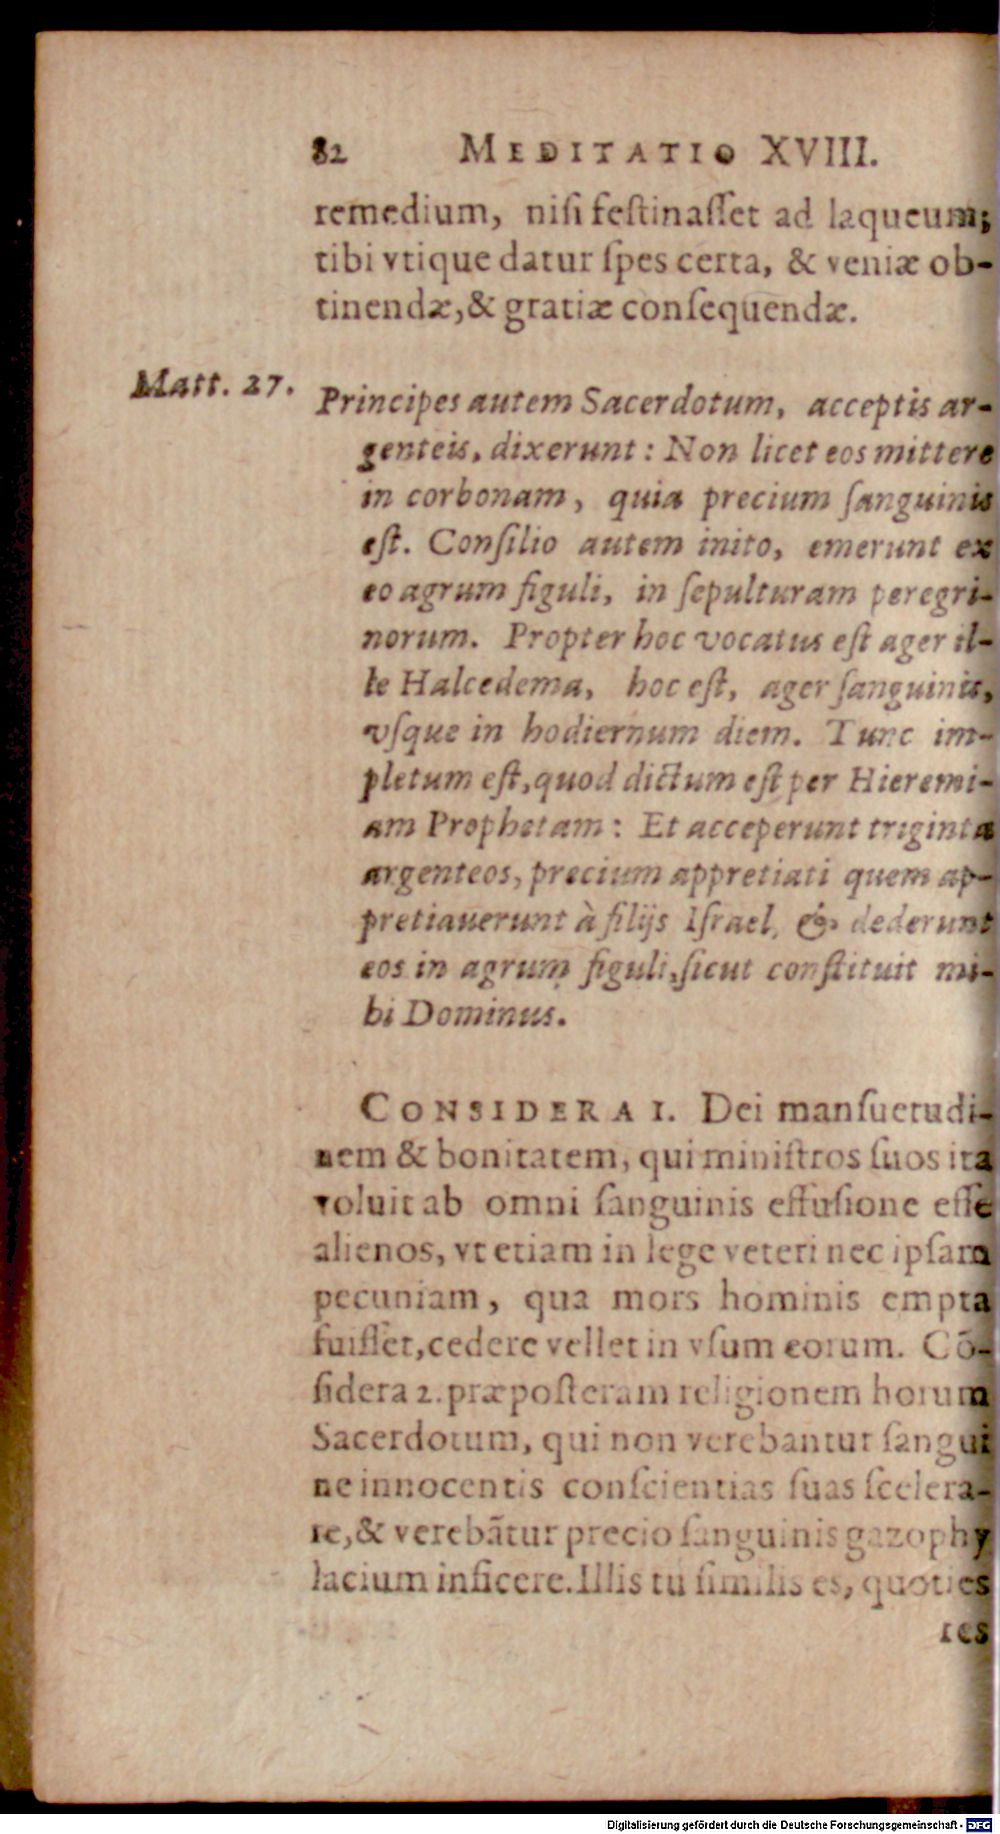 82 MEDITATIO XVIII.
remedium, niſi feſtinaſſet ad laqueum;
tibi vtique datur ſpes certa, & veniæ ob-
tinendæ, & gratiæ conſequendæ.
Matt. 27.
Principes autem Sacerdotum, acceptis ar-
genteis, dixerunt: Non licet eos mittere
in corbonam, quia precium ſanguinis
eſt. Conſilio autem inito, emerunt ex
eo agrum figuli, in ſepulturam peregri-
norum. Propter hoc vocatus eſt ager il-
le Halcedema, hoc eſt, ager ſanguinis,
vſque in hodiernum diem. Tunc im-
pletum eſt, quod dictum eſt per Hieremi-
am Prophetam: Et acceperunt triginta
argenteos, precium appretiati quem ap-
pretiauerunt à filijs Iſrael, & dederunt
eos in agrum figuli, ſicut conſtituit mi-
hi Dominus.
CONSIDERA 1. Dei manſuetudi-
nem & bonitatem, qui miniſtros ſuos ita
voluit ab omni ſanguinis effuſione eſſe
alienos, vt etiam in lege veteri nec ipſam
pecuniam, qua mors hominis empta
fuiſſet, cedere vellet in vſum eorum. Cõ-
ſidera 2. præpoſteram religionem horum
Sacerdotum, qui non verebantur ſangui
ne innocentis conſcientias ſuas ſcelera-
re, & verebãtur precio ſanguinis gazophy
lacium inficere. Illis tu ſimilis es, quoties
res
Digitalisierung gefördert durch die Deutsche Forschungsgemeinschaft - DFG